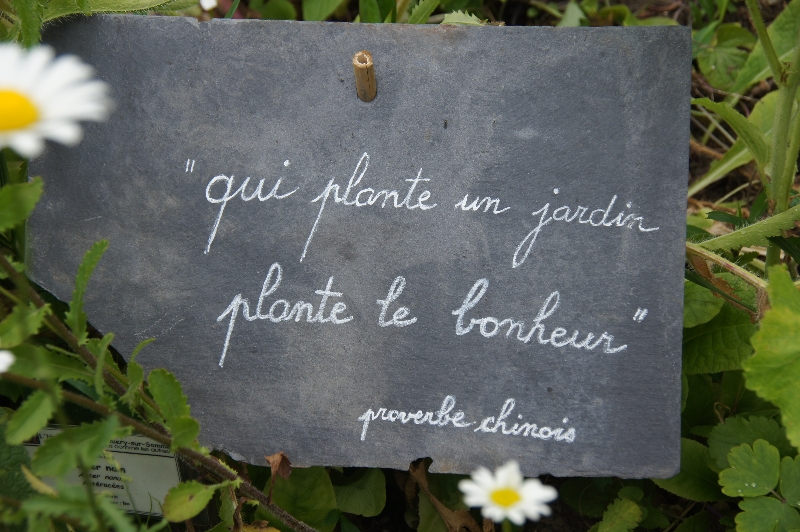 "qui plante un jardin
plante le bonheur"
proverbe chinois